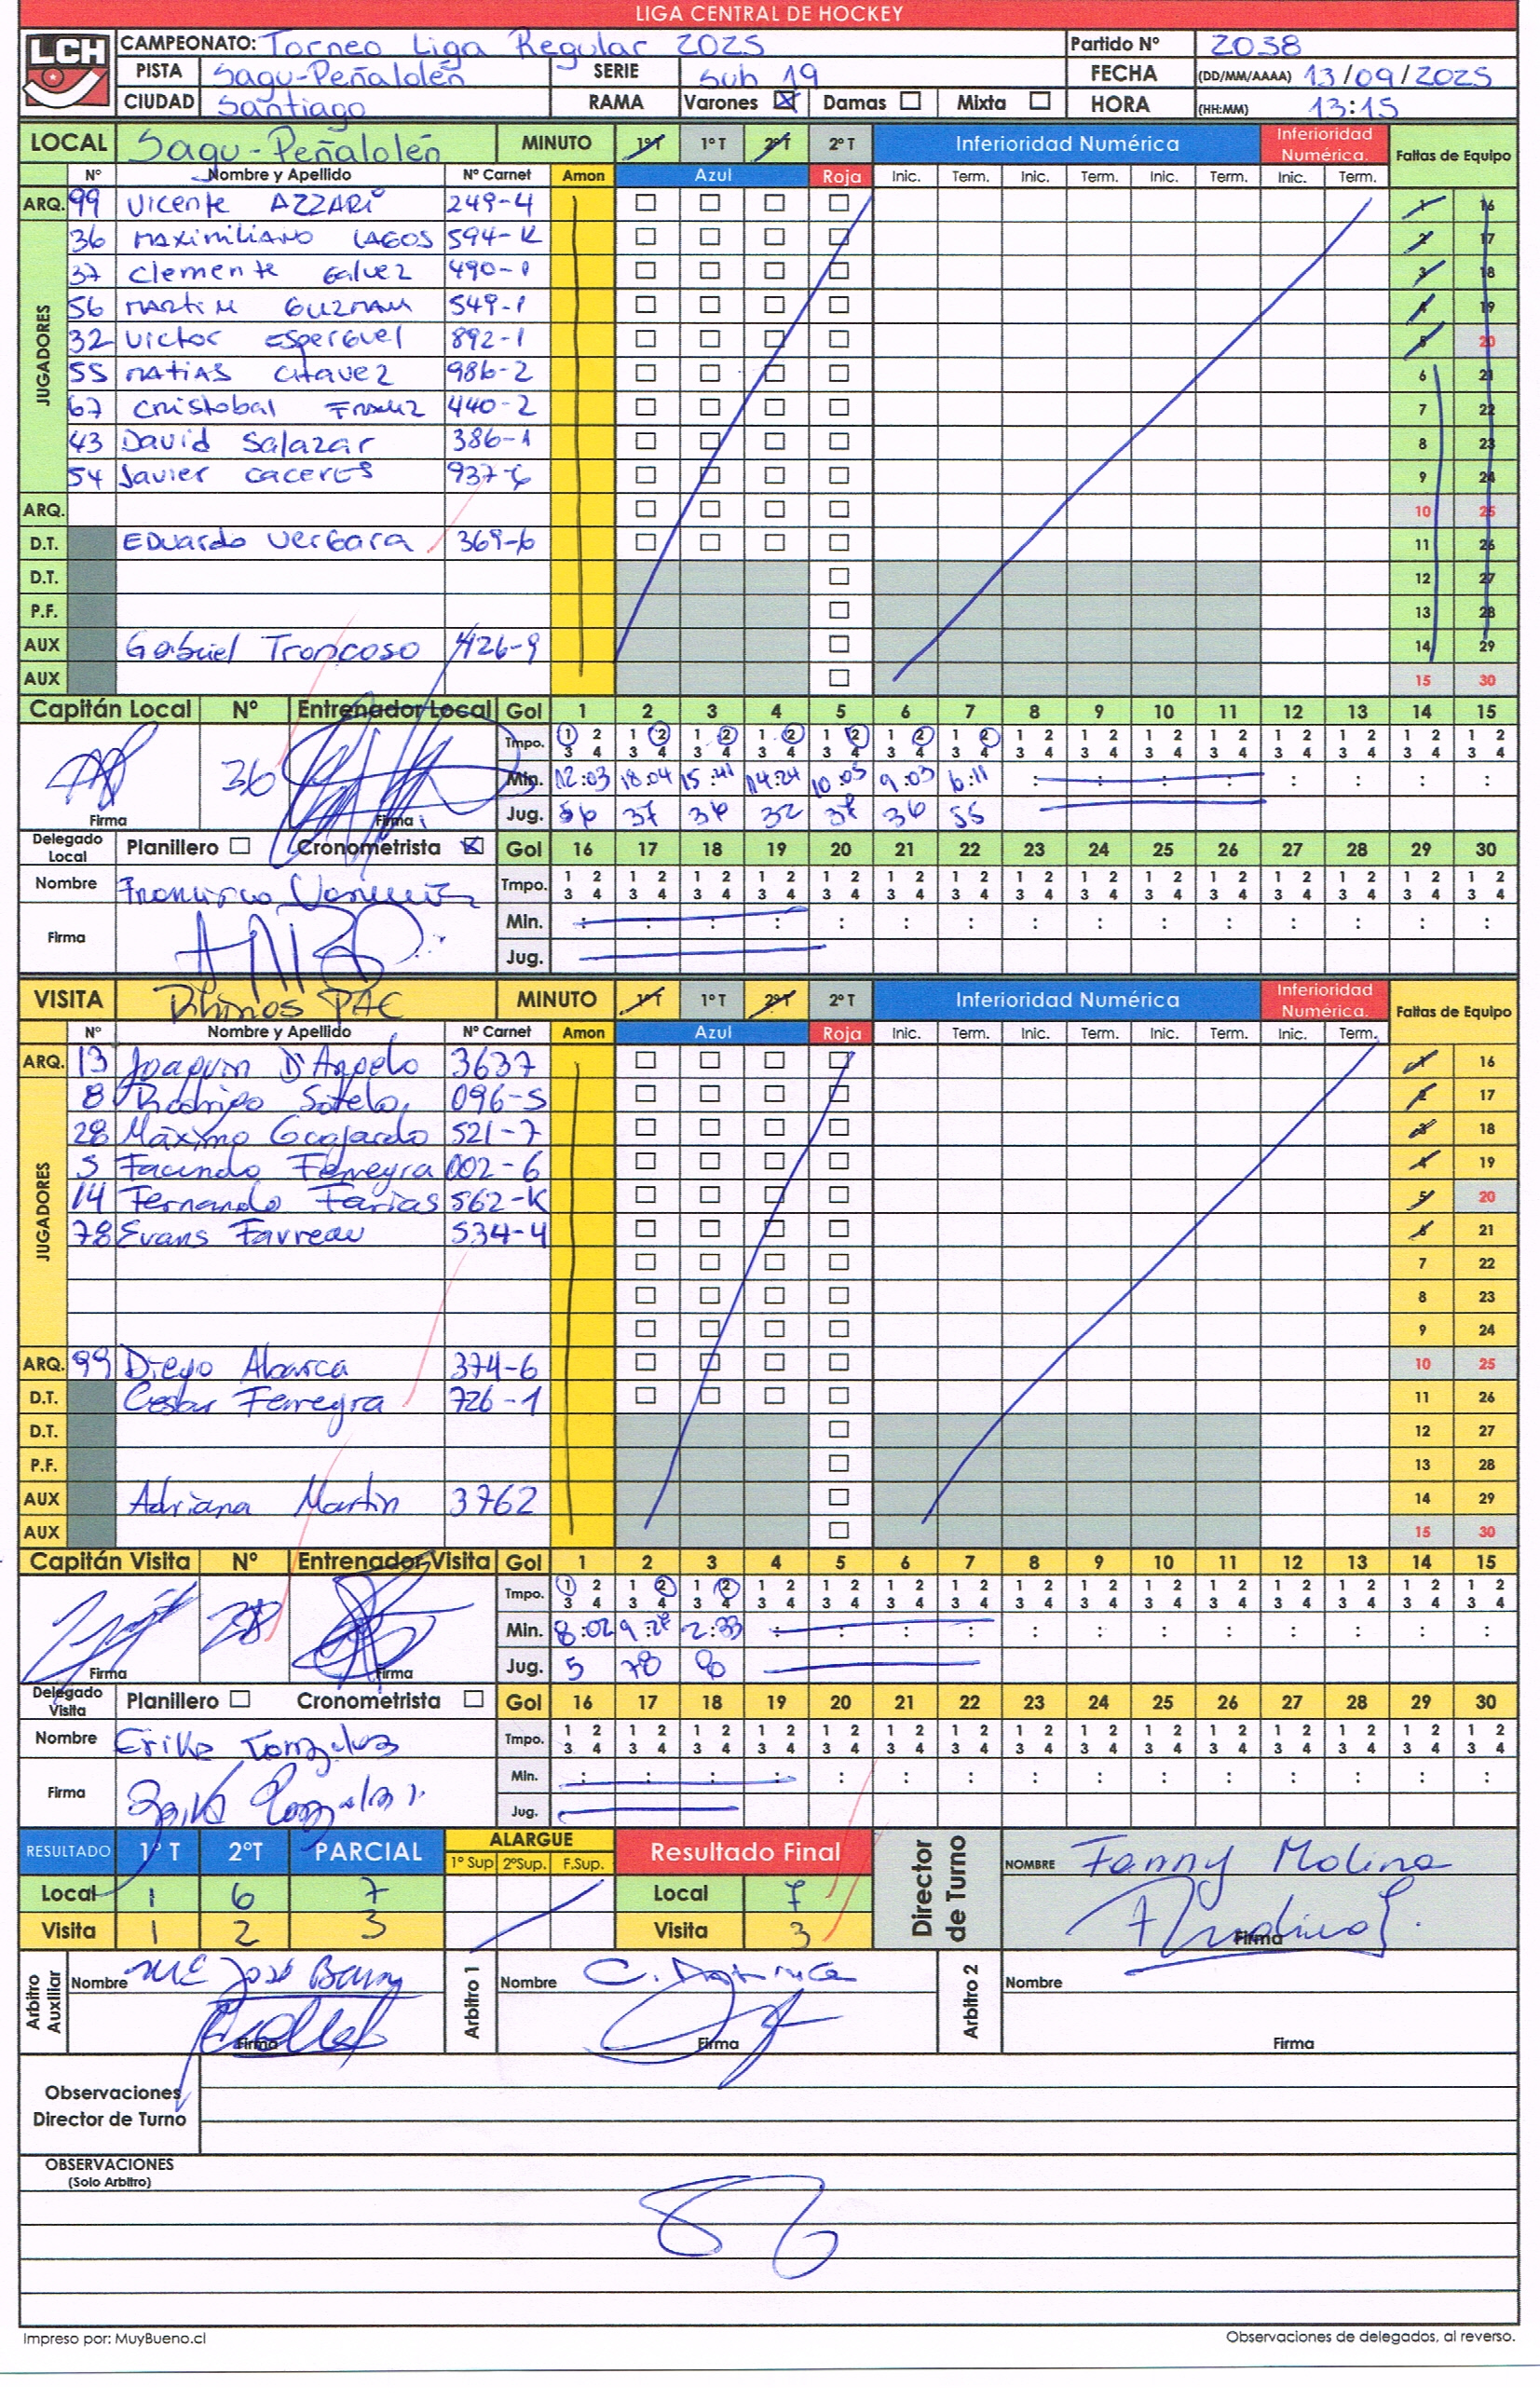 LIGA CENTRAL DE HOCKEY
LCH
CAMPEONATO: Torneo Liga Regular 2025 Partido Nº 2038
PISTA Sagu-Peñalolén SERIE Sub 19 FECHA (DD/MM/AAAA) 13/09/2025
CIUDAD Santiago RAMA Varones Damas Mixta HORA (HH:MM) 13:15
LOCAL Sagu-Peñalolén MINUTO 1ºT 1ºT 2ºT 2ºT Inferioridad Numérica Inferioridad Numérica. Faltas de Equipo
Nº Nombre y Apellido Nº Carnet Amon Azul Roja Inic. Term. Inic. Term. Inic. Term. Inic. Term.
ARQ. 99 Vicente AZZARi 249-4 1 16
JUGADORES
36 MAXIMILIANO LAGOS 594-K 2 17
37 Clemente Galvez 490-1 3 18
56 MARTIN GUZMAN 549-1 4 19
32 Victor Esperguel 892-1 5 20
55 MATIAS CHAVEZ 986-2 6 21
67 Cristobal 440-2 7 22
43 David Salazar 386-1 8 23
54 Javier CACERES 937-6 9 24
ARQ. 10 25
D.T. EDuardo Vergara 369-6 11 26
D.T. 12 27
P.F. 13 28
AUX Gabriel Troncoso 426-9 14 29
AUX 15 30
Capitán Local Nº Entrenador Local Gol 1 2 3 4 5 6 7 8 9 10 11 12 13 14 15
Tmpo. 1 2 1 2 1 2 1 2 1 2 1 2 1 2 1 2 1 2 1 2 1 2 1 2 1 2 1 2 1 2
3 4 3 4 3 4 3 4 3 4 3 4 3 4 3 4 3 4 3 4 3 4 3 4 3 4 3 4 3 4
36 Min. 12:03 18:04 15:41 14:24 10:05 9:03 6:11 : : : : : : : :
Firma Firma Jug. 56 37 36 32 37 36 55
Delegado Local Planillero Cronometrista Gol 16 17 18 19 20 21 22 23 24 25 26 27 28 29 30
Nombre Francisco Tmpo. 1 2 1 2 1 2 1 2 1 2 1 2 1 2 1 2 1 2 1 2 1 2 1 2 1 2 1 2 1 2
3 4 3 4 3 4 3 4 3 4 3 4 3 4 3 4 3 4 3 4 3 4 3 4 3 4 3 4 3 4
Firma Min. : : : : : : : : : : : : : : :
Jug.
VISITA Rhinos PAC MINUTO 1ºT 1ºT 2ºT 2ºT Inferioridad Numérica Inferioridad Numérica. Faltas de Equipo
Nº Nombre y Apellido Nº Carnet Amon Azul Roja Inic. Term. Inic. Term. Inic. Term. Inic. Term.
ARQ. 13 Joaquin D'Angelo 3637 1 16
JUGADORES
8 Rodrigo Sotelo 096-5 2 17
28 Máximo Guajardo 521-7 3 18
5 Facundo Ferreyra 002-6 4 19
14 Fernando Farias 562-K 5 20
78 Evans Favreau 534-4 6 21
7 22
8 23
9 24
ARQ. 99 Diego Abarca 374-6 10 25
D.T. Cesar Ferreyra 726-1 11 26
D.T. 12 27
P.F. 13 28
AUX Adriana Martin 3762 14 29
AUX 15 30
Capitán Visita Nº Entrenador Visita Gol 1 2 3 4 5 6 7 8 9 10 11 12 13 14 15
Tmpo. 1 2 1 2 1 2 1 2 1 2 1 2 1 2 1 2 1 2 1 2 1 2 1 2 1 2 1 2 1 2
3 4 3 4 3 4 3 4 3 4 3 4 3 4 3 4 3 4 3 4 3 4 3 4 3 4 3 4 3 4
28 Min. 8:02 2:33 : : : : : : : : : : : :
Firma Firma Jug. 5 78
Delegado Visita Planillero Cronometrista Gol 16 17 18 19 20 21 22 23 24 25 26 27 28 29 30
Nombre Erika Gonzalez Tmpo. 1 2 1 2 1 2 1 2 1 2 1 2 1 2 1 2 1 2 1 2 1 2 1 2 1 2 1 2 1 2
3 4 3 4 3 4 3 4 3 4 3 4 3 4 3 4 3 4 3 4 3 4 3 4 3 4 3 4 3 4
Firma Min. : : : : : : : : : : : : : : :
Jug.
RESULTADO 1º T 2ºT PARCIAL ALARGUE Resultado Final Director de Turno NOMBRE Fanny Molina
1º Sup 2ºSup. F.Sup.
Local 1 6 7 Local 7
Visita 1 2 3 Visita 3 Firma
Arbitro Auxiliar Nombre José Arbitro 1 Nombre C. Arbitro 2 Nombre
Firma Firma Firma
Observaciones
Director de Turno
OBSERVACIONES
(Solo Arbitro)
Impreso por: MuyBueno.cl Observaciones de delegados, al reverso.